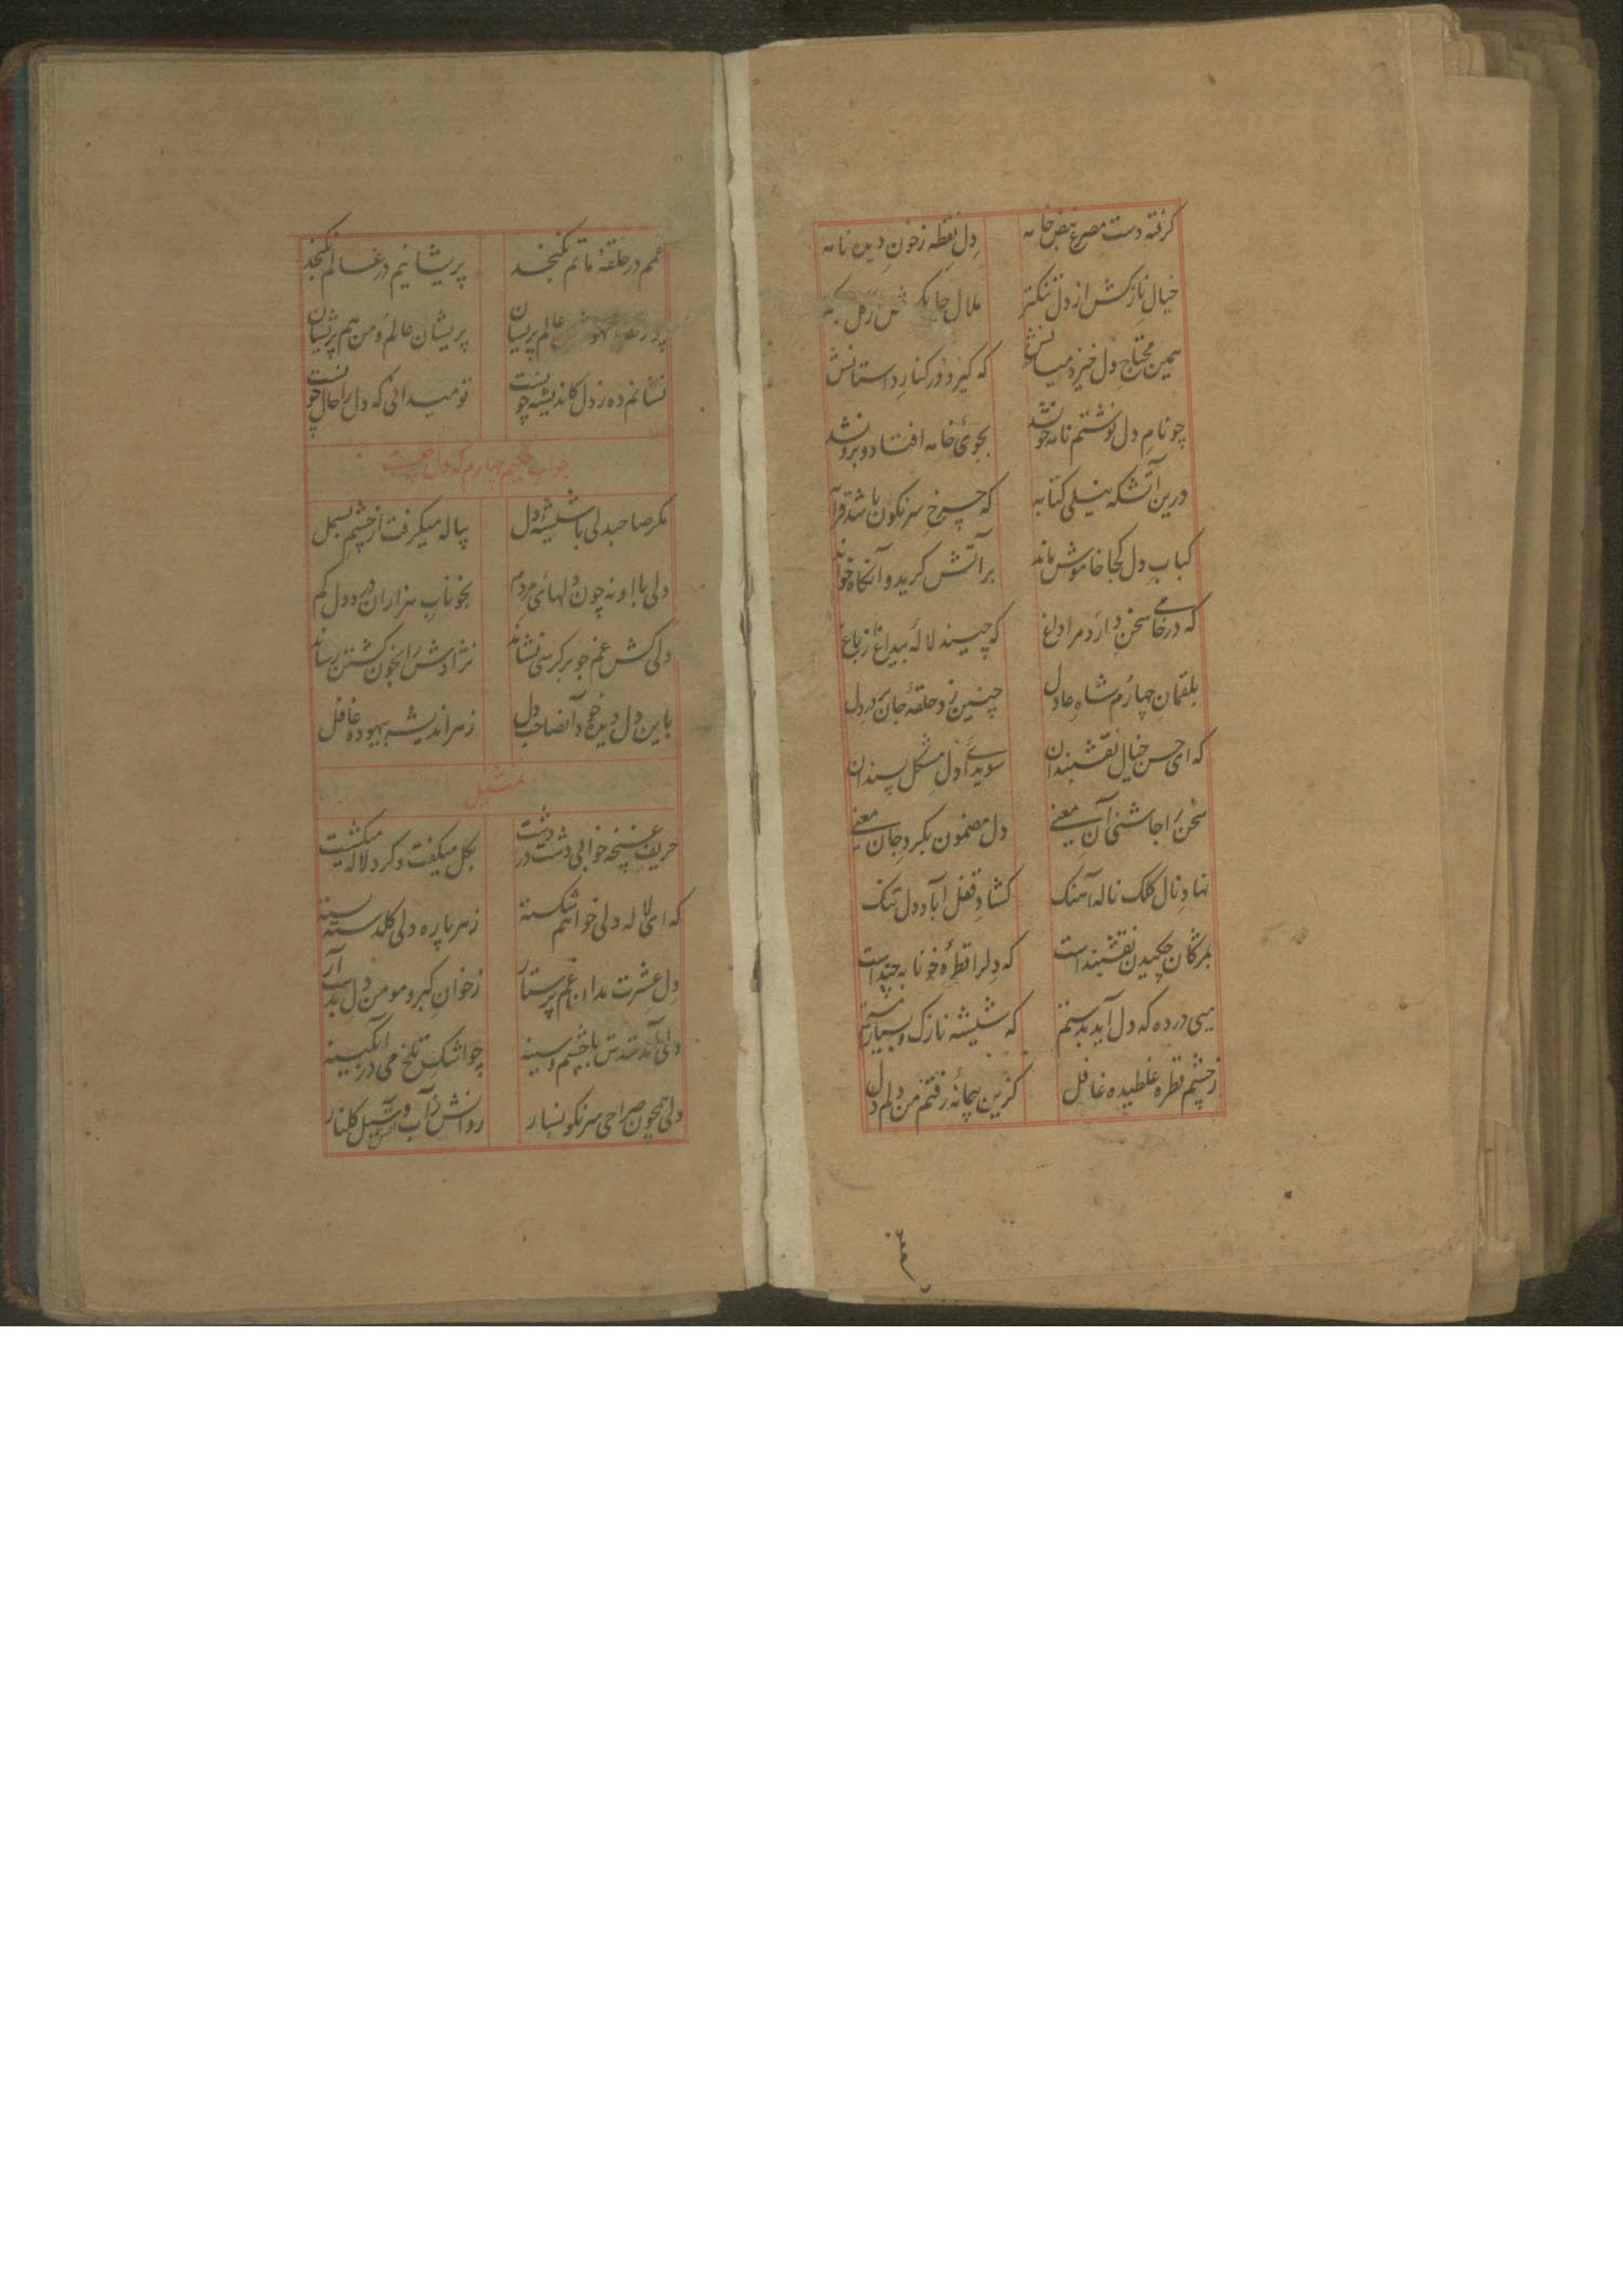 گرفته دست مصرع نبض خامه دل نقطه ز خون دیده نامه
خیال نازکش از دل تنکتر ملال
همین محتاج دل خیزد میانش که گیرد در کنار داستانش
چو نام دل نوشتم نامه خونشد بجوی خامه افتاد و برونشد
درین آتشکه نیلی کتابه که چرخ سرنگون باشد قرآبه
کباب دل کجا خاموش ماند بر آتش گرید و آنگاه خواند
که در خامی سخن دارد مرا داغ که چیند لالهٔ بیداغ ز باغ
بلقمان چهارم شاه عادل چنین زد حلقهٔ جان بر در دل
که ای حسن خیال نقشبندان سویدای دل مشکل پسندان
سخن را چاشنی آن معنی دل مضمون بکر و جان معنی
نهاد نال کلک ناله آهنگ گشاد قفل آباد دل تنگ
بمژگان چکیدن نقشبند است که دلرا قطرهٔ خونابه چند است
میی در ده که دل آید بدستم که شیشه نازک و بسیار مستم
ز چشم قطره غلطیده غافل کزین پیمانه رفتم من دلم دل
غمم در حلقهٔ ماتم نگنجد پریشانیم در عالم نگنجد
عالم پریشان پریشان عالم و من هم پریشان
نشانم ده ز دل کاندیشه چونست تو میدانی که دل را حال چونست
جواب حکیم چهارم که دل چیست
مگر صاحبدلی با شیشهٔ دل پیاله میگرفت از چشم بسمل
دلی با او نه چون دلهای مردم بخوناب هزاران درد دل گم
دلی کش غم چو بر کرسی نشاند نژادش را بخون گشتن رساند
باین دل دیده خود آنصاحب دل ز هر اندیشه بیهوده غافل
تمثیل
حریف غنچه خوابی دشت در دشت بگل میگفت و گرد لاله میگشت
که ای لاله دلی خواهم شکسته ز هر پاره دلی گلدسته بسته
دل عشرت مدان غم پرستار ز خوان گبر و مومن دل بدست آر
دلی با چشم و سینه چو اشک تلخ می در آبگینه
دلی همچون صراحی سرنگونسار روانش آب و آتش سیل گلنار